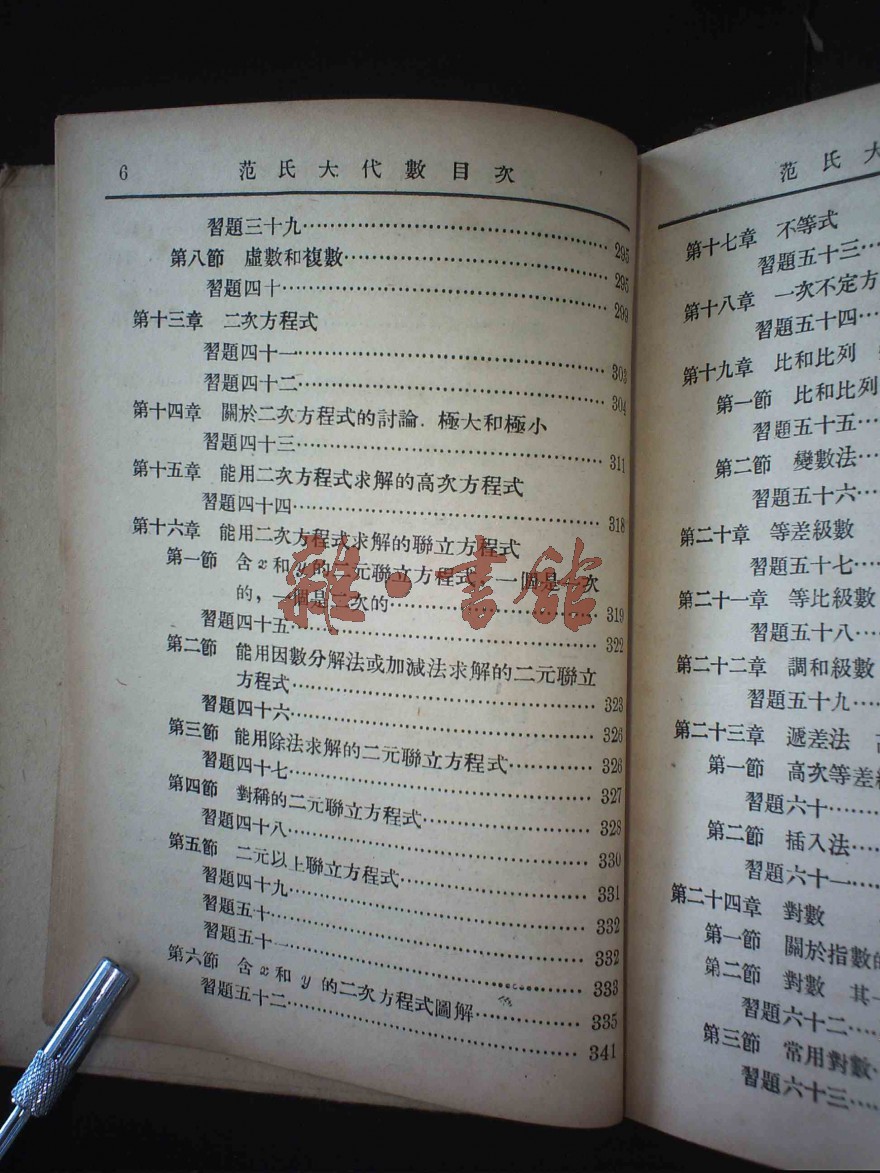 6 范氏大代數目次
習題三十九……295
第八節 虛數和複數……295
習題四十……299
第十三章 二次方程式
習題四十一……303
習題四十二……304
第十四章 關於二次方程式的討論. 極大和極小
習題四十三……311
第十五章 能用二次方程式求解的高次方程式
習題四十四……318
第十六章 能用二次方程式求解的聯立方程式
第一節 含x和y的二元聯立方程式,一個是一次
的,一個是二次的……319
習題四十五……322
第二節 能用因數分解法或加減法求解的二元聯立
方程式……323
習題四十六……326
第三節 能用除法求解的二元聯立方程式……326
習題四十七……327
第四節 對稱的二元聯立方程式……328
習題四十八……330
第五節 二元以上聯立方程式……331
習題四十九……332
習題五十……332
習題五十一……333
第六節 含x和y的二次方程式圖解……335
習題五十二……341
雜·書館
范氏大
第十七章 不等式
習題五十三……
第十八章 一次不定方
習題五十四……
第十九章 比和比列
第一節 比和比列
習題五十五……
第二節 變數法……
習題五十六……
第二十章 等差級數
習題五十七……
第二十一章 等比級數
習題五十八……
第二十二章 調和級數
習題五十九……
第二十三章 遞差法
第一節 高次等差級
習題六十……
第二節 插入法……
習題六十一……
第二十四章 對數
第一節 關於指數的
第二節 對數 其一
習題六十二……
第三節 常用對數……
習題六十三……